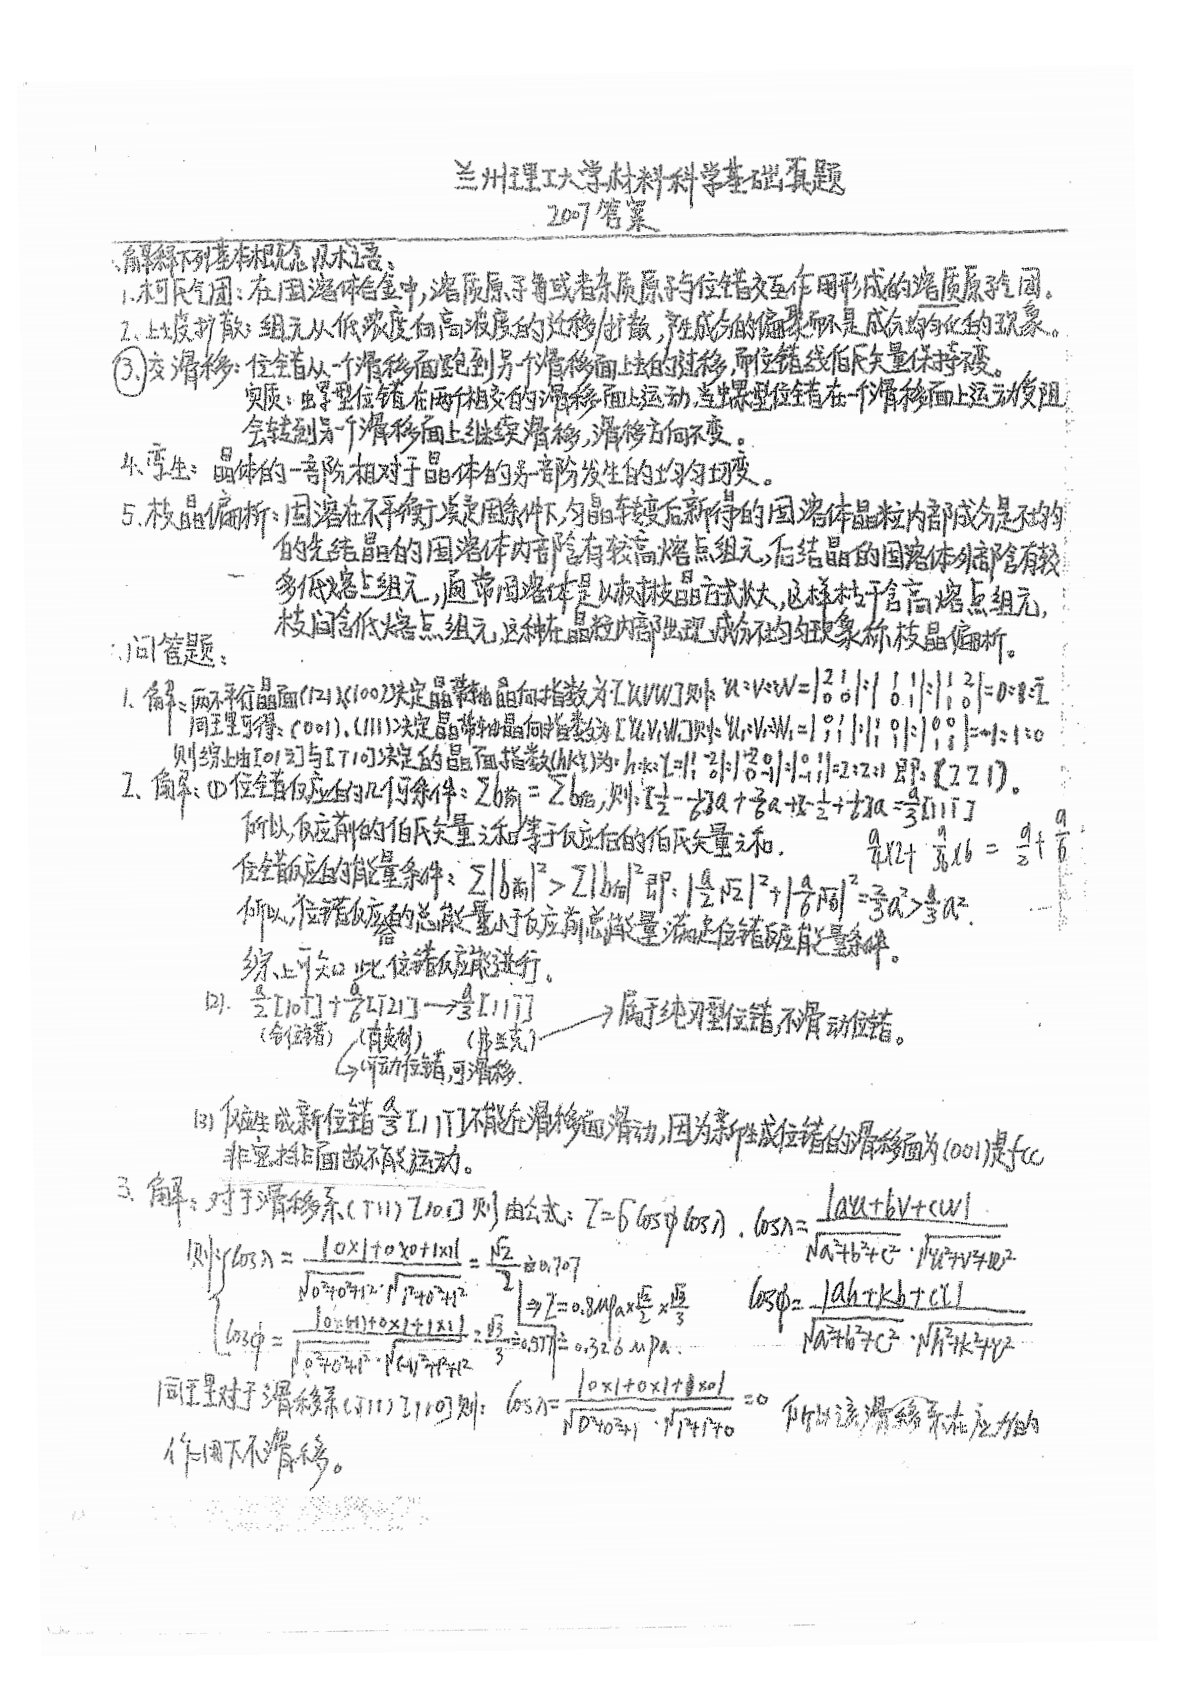 兰州理工大学材料科学基础真题
2007答案
、解释下列基本概念及术语:
1.柯氏气团:在固溶体合金中,溶质原子或者杂质原子与位错交互作用形成的溶质原子气团。
2.上坡扩散:组元从低浓度向高浓度的迁移/扩散,产生成分的偏聚而不是成分均匀化的现象。
3.交滑移:位错从一个滑移面跑到另一个滑移面上去的过程,而位错线伯氏矢量保持不变。
实质:螺型位错在两个相交的滑移面上运动,当螺型位错在一个滑移面上运动受阻
会转到另一个滑移面上继续滑移,滑移方向不变。
4、孪生:晶体的一部分相对于晶体的另一部分发生的均匀切变。
5.枝晶偏析:固溶在不平衡凝固条件下,匀晶转变后新得的固溶体晶粒内部成分是不均匀
的先结晶的固溶体内部含有较高熔点组元,后结晶的固溶体外部含有较
多低熔点组元,通常固溶体是以树枝晶方式长大,这样枝干含高熔点组元,
枝间含低熔点组元,这种在晶粒内部出现成分不均匀现象称枝晶偏析。
、问答题:
1.解:两不平行晶面(121)、(100)决定晶带轴晶向指数为[UVW]则:u:v:w=|2 1 0 0|:|1 1 0 1|:|1 2 1 0|=0:1:2̅
同理可得:(001)、(111)决定晶带轴晶向指数为[U₁V₁W₁]则:U₁:V₁:W₁=|0 1 1 1|:|1 0 1 1|:|0 0 1 1|=-1:1:0
则综上由[012̅]与[1̅10]决定的晶面指数(hkl)为:h:k:l=2:2:1 即:(221)。
2、解:(1)位错反应的几何条件:Σb前=Σb后,则:[½-⅙]a+⅔a+[-½+⅙]a=a/3[111̅]
所以,反应前的伯氏矢量之和等于反应后的伯氏矢量之和.
a/4×2+a/36×6=a/2+a/6
位错反应的能量条件:Σ|b前|²>Σ|b后|²即:|a/2√2|²+|a/6√6|²=2/3a²>1/3a².
所以,位错反应后的总能量小于反应前总能量满足位错反应能量条件。
综上可知此位错反应能进行。
(2). a/2[101̅]+a/6[1̅21̅]→a/3[111̅] → 属于纯刃型位错,不滑动位错。
(全位错) (肖克利) (弗兰克)
可动位错,可滑移.
(3)反应生成新位错a/3[111̅]不能在滑移面滑动,因为新生成位错的滑移面为(001)是fcc
非密排面故不能运动。
3.解:对于滑移系(1̅11)[101]则由公式:τ=σcosφcosλ.cosλ=|au+bv+cw|/√a²+b²+c²·√u²+v²+w²
则:cosλ=|0×1+0×0+1×1|/√0²+0²+1²·√1²+0²+1²=√2/2≐0.707
⇒τ=0.8MPa×√2/2×√3/3 cosφ=|ah+kb+cl|/√a²+b²+c²·√h²+k²+l²
cosφ=|0×(-1)+0×1+1×1|/√0²+0²+1²·√(-1)²+1²+1²=√3/3≐0.577≐0.326MPa.
同理对于滑移系(1̅11)[110]则:cosλ=|0×1+0×1+1×0|/√0²+0²+1·√1²+1²+0=0 所以该滑移系在应力的
作用下不滑移。